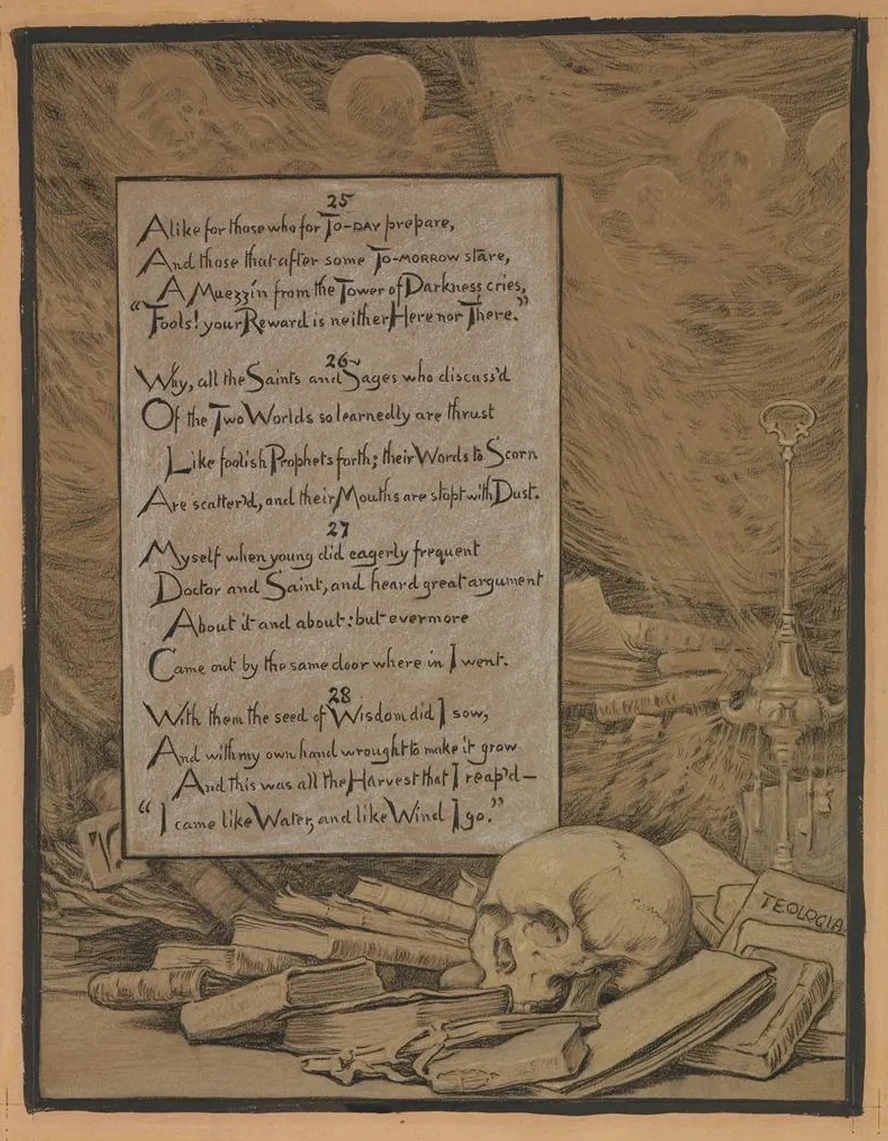 25
Alike for those who for To-DAY prepare,
And those that after some To-MORROW stare,
A Muezzin from the Tower of Darkness cries,
“Fools! your Reward is neither Here nor There.”
26~
Why, all the Saints and Sages who discuss'd
Of the Two Worlds so learnedly are thrust
Like foolish Prophets forth; their Words to Scorn
Are scatter'd, and their Mouths are stopt with Dust.
27
Myself when young did eagerly frequent
Doctor and Saint, and heard great argument
About it and about: but evermore
Came out by the same door where in I went.
28
With them the seed of Wisdom did I sow,
And with my own hand wrought to make it grow
And this was all the Harvest that I reap'd—
“I came like Water, and like Wind I go.”
TEOLOGIA